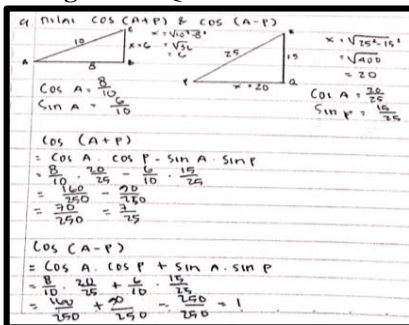 a nilai cos (A+P) & cos (A-P)
C
10
x = 6
A
8
B
x = √10²-8²
= √36
= 6
R
25
15
P
x = 20
Q
x = √25²-15²
= √400
= 20
Cos A = 8/10
Sin A = 6/10
Cos A = 20/25
Sin P = 15/25
Cos (A+P)
= Cos A . Cos P - Sin A . Sin P
= 8/10 . 20/25 - 6/10 . 15/25
= 160/250 - 90/250
= 70/250 = 7/25
Cos (A-P)
= Cos A . Cos P + Sin A . Sin P
= 8/10 . 20/25 + 6/10 . 15/25
= 160/250 + 90/250 = 250/250 = 1